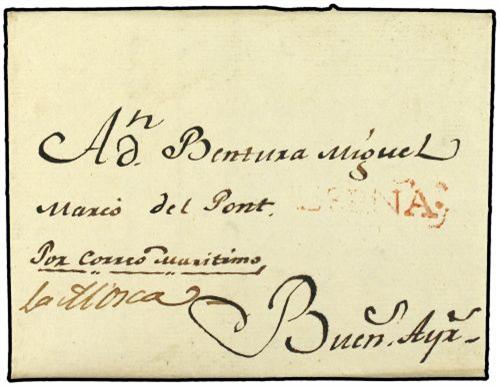 A dn. Bentura Miguel
Marcó del Pont.
Por Correo Maritimo
la Mosca
Buens. Ayrs.